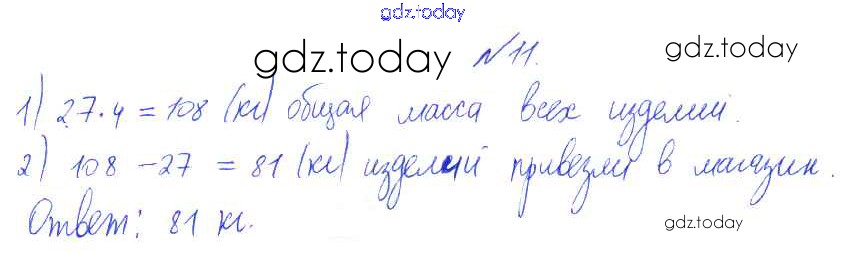 gdz.today
gdz.today №11. gdz.today
1) 27·4 = 108 (кг) общая масса всех изделий.
2) 108 - 27 = 81 (кг) изделий привезли в магазин.
Ответ: 81 кг.
gdz.today